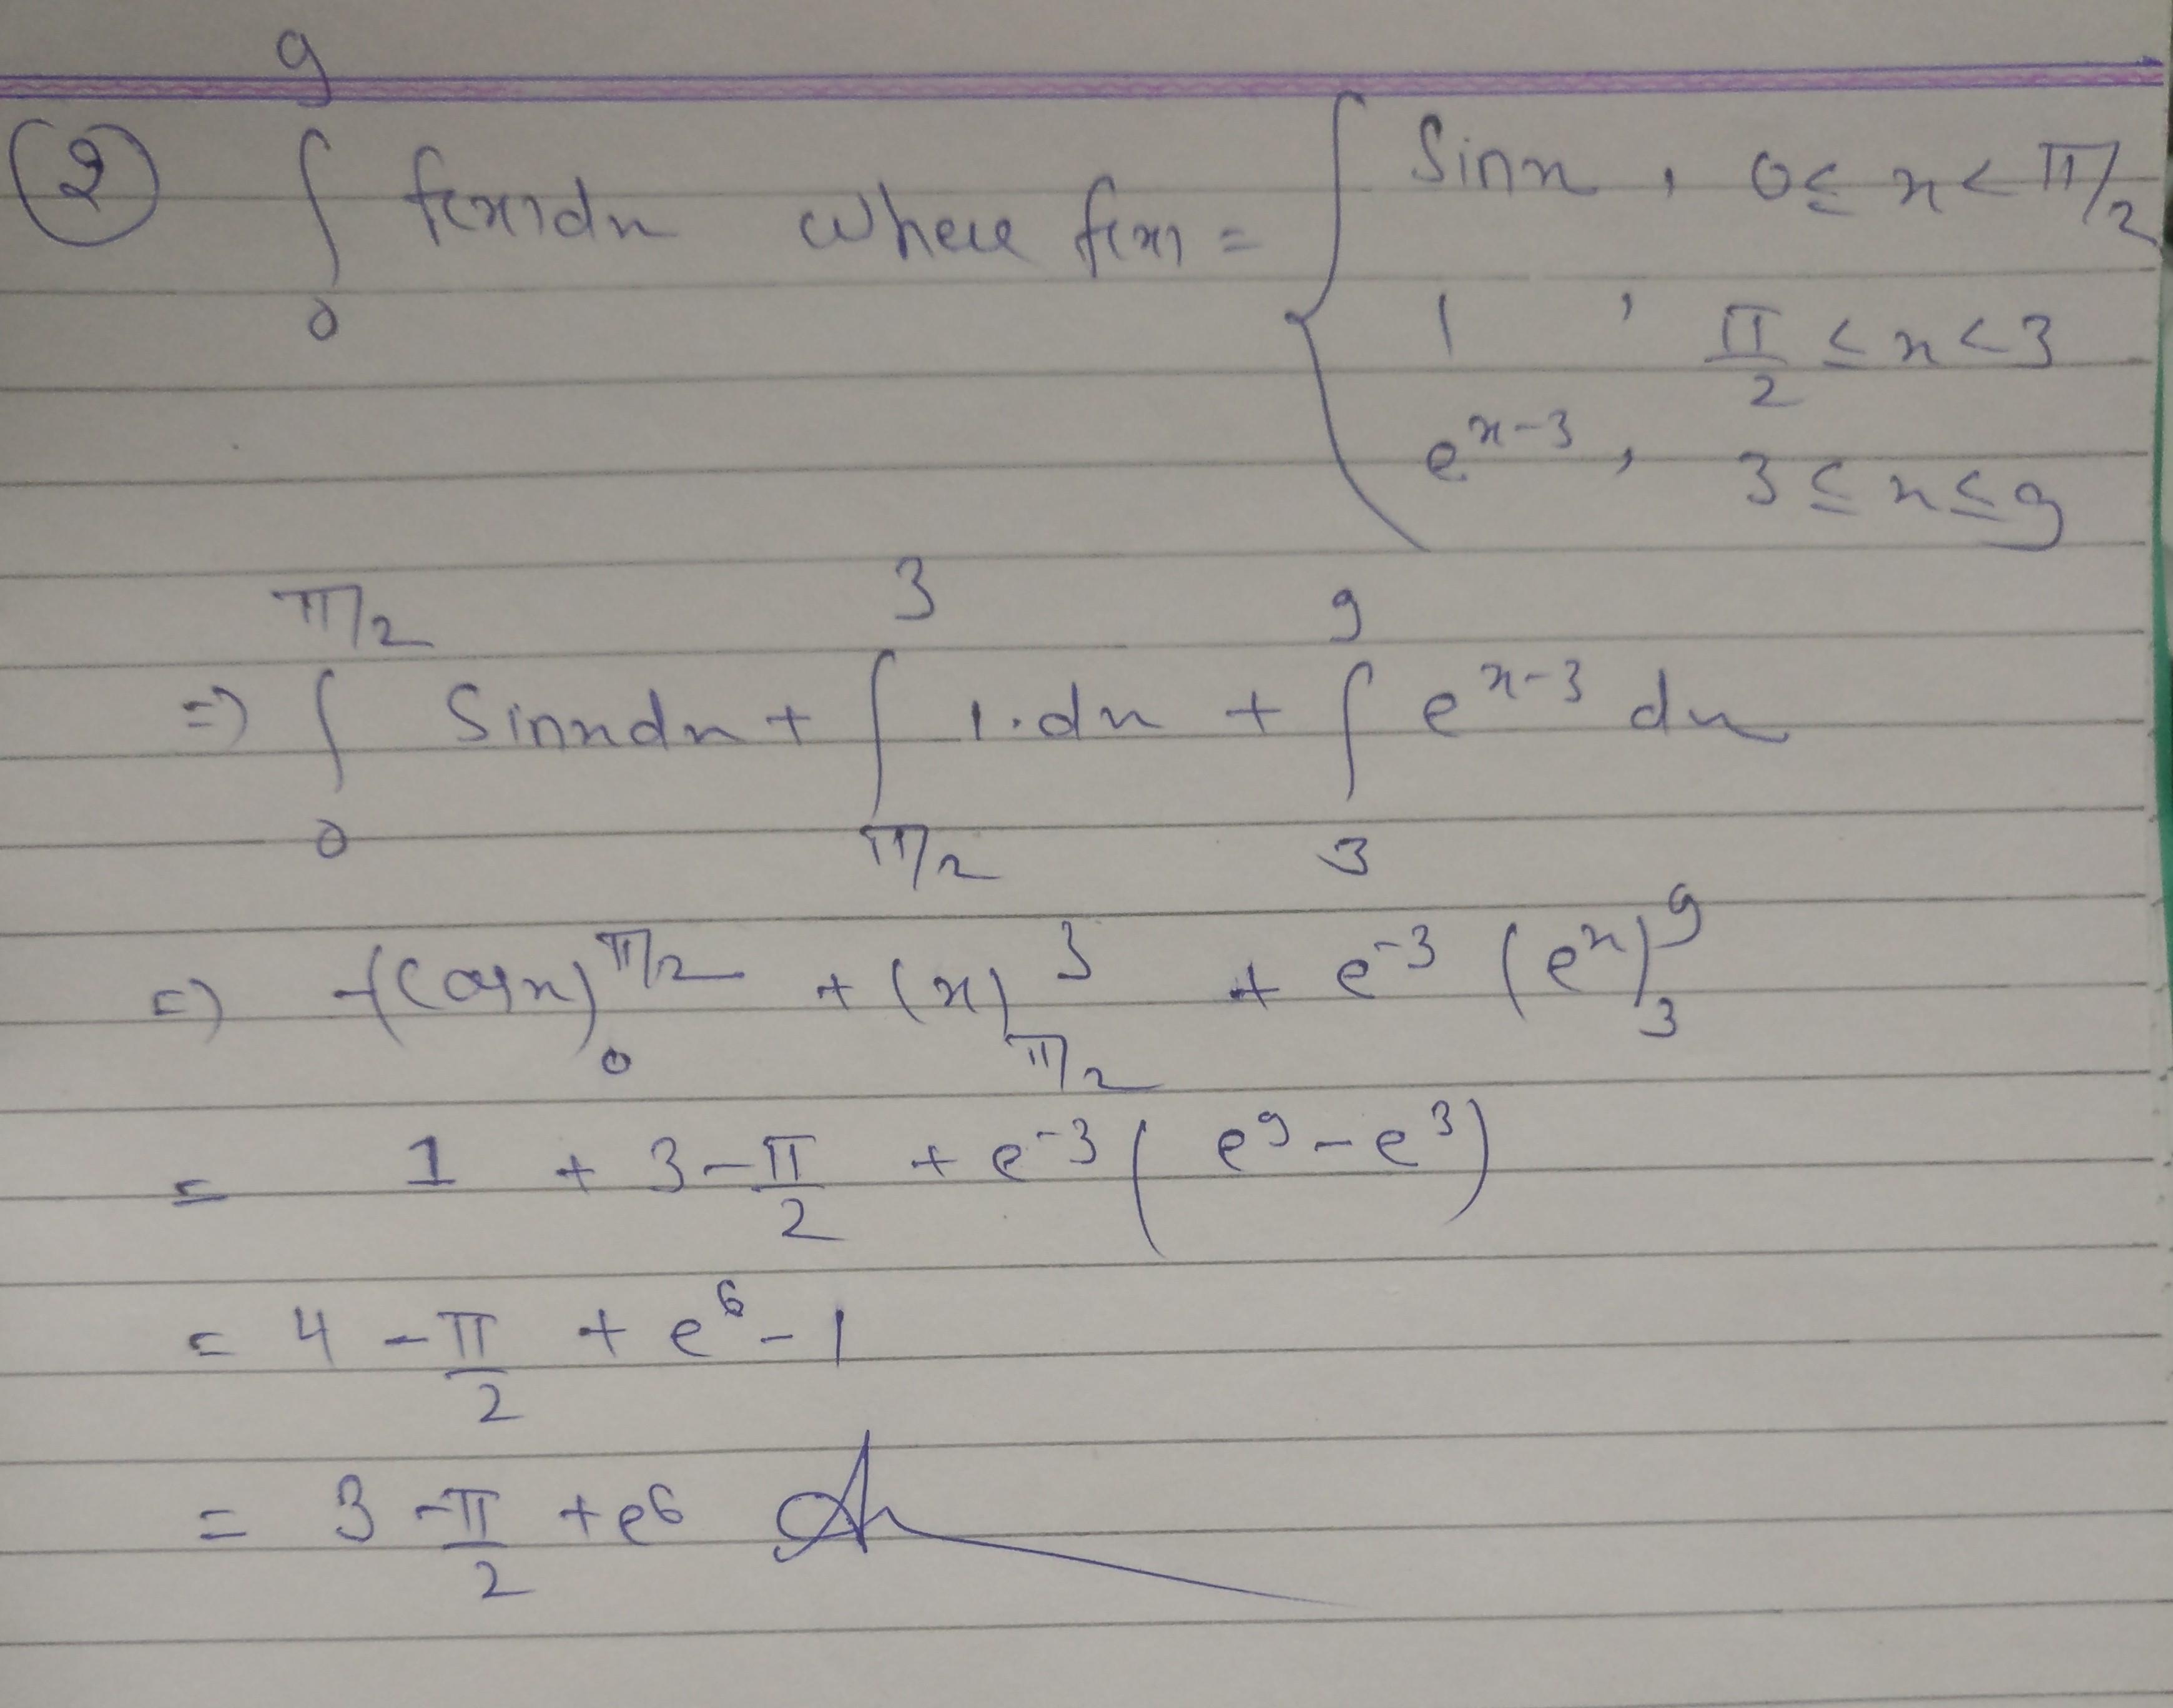 ② ∫₀⁹ f(x)dx where f(x) = { sinx , 0 ≤ x < π/2
1 , π/2 ≤ x < 3
e^(x-3) , 3 ≤ x ≤ 9
⇒ ∫₀^(π/2) Sinxdx + ∫_(π/2)^3 1.dx + ∫₃⁹ e^(x-3) dx
⇒ -(cosx)₀^(π/2) + (x)_(π/2)^3 + e^(-3) (e^x)₃⁹
= 1 + 3 - π/2 + e^(-3) ( e⁹ - e³ )
= 4 - π/2 + e⁶ - 1
= 3 - π/2 + e⁶ An